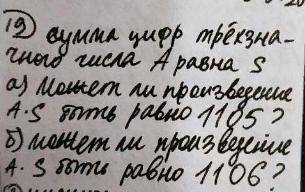 19) сумма цифр трёхзна-
чного числа А равна S
а) может ли произведение
А·S быть равно 1105?
б) может ли произведение
А·S быть равно 1106?